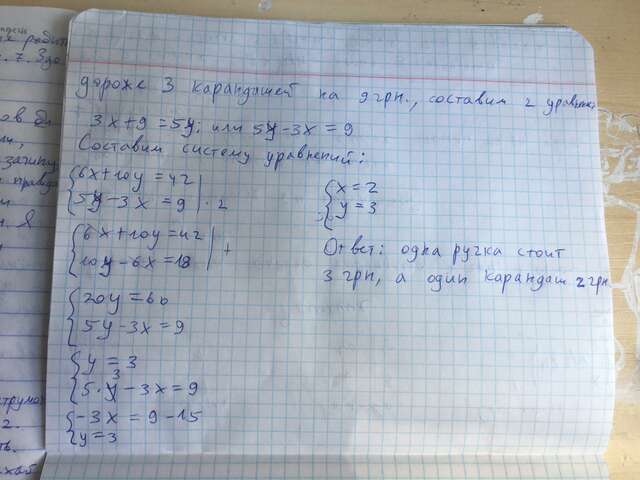 дороже 3 карандашей на 9 грн., составим 2 уравнения
3x+9=5y; или 5y-3x=9
Составим систему уравнений:
{6x+10y=42
{5y-3x=9|·2
{6x+10y=42
{10y-6x=18|+
{20y=60
{5y-3x=9
{y=3
{5·3-3x=9
{-3x=9-15
{y=3
{x=2
{y=3
Ответ: одна ручка стоит
3 грн, а один карандаш 2 грн
7. Здо
ов
зачину
правда
я
струмо
2.